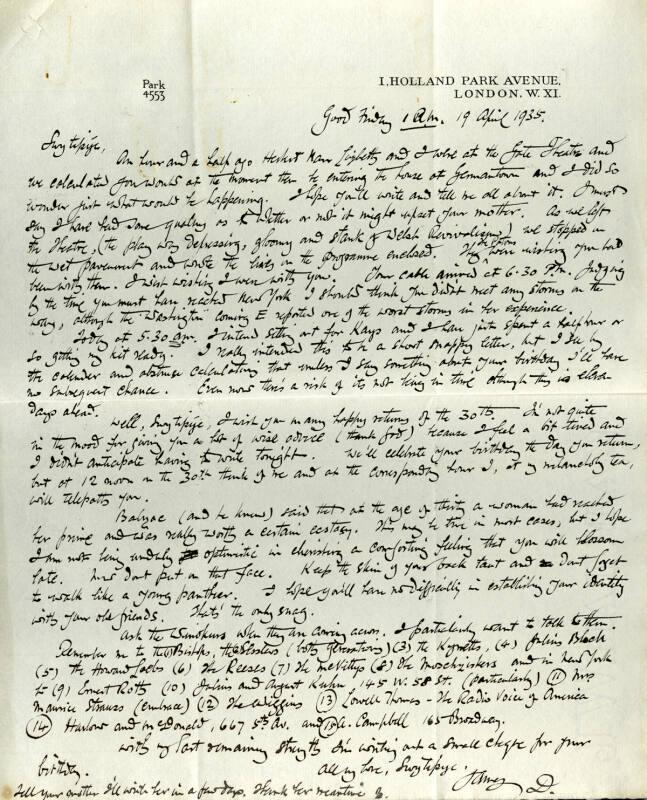 Park
4553
1, HOLLAND PARK AVENUE,
LONDON. W. XI.
Good Friday 1 a.m. 19 April 1935.
An hour and a half ago Herbert and I were at the Gate Theatre and
we calculated you would at the moment then be entering the house at Germantown and I did so
wonder just what would be happening. I hope you'll write and tell me all about it. I must
say I have had some qualms as to whether or not it might upset your mother. As we left
the theatre, (the play was depressing, gloomy and stank of Welsh Revivalism) we stopped on
the wet pavement and wrote the lines on the programme enclosed. wishing you had
been with them. I was wishing I were with you. Your cable arrived at 6.30 P.m. Judging
by the time you must have reached New York I should think you didn't meet any storms on the
way, although the "Washington" coming E reported one of the worst storms in her experience.
Today at 5.30 am. I intend setting out for Kays and I have just spent a half hour or
so getting my kit ready. I really intended this to be a short snappy letter, but I see by
the calendar and abstruse calculating that unless I say something about your birthday I'll have
no subsequent chance. Even now there's a risk of its not being in time although this is eleven
days ahead.
Well, I wish you many happy returns of the 30th. I'm not quite
in the mood for giving you a lot of wise advice (thank God) because I feel a bit tired and
I didn't anticipate having to write tonight. We'll celebrate your birthday the day you return,
but at 12 noon on the 30th think of me and at the corresponding hour I, at my melancholy tea,
will telepathy you.
Balzac (and he knew) said that at the age of thirty a woman had reached
her prime and was really worth a certain ecstasy. This may be true in most cases, but I hope
I am not being unduly optimistic in cherishing a comforting feeling that you will blossom
late. Now don't put on that face. Keep the skin of your back taut and don't forget
to walk like a young panther. I hope you'll have no difficulty in establishing your identity
with your old friends. That's the only snag.
Ask the when they are coming across. I particularly want to talk to them.
Remember me to the (1) (2) (both generations) (3) the (4) Julius Bloch
(5) the Howard Loebs (6) The Reeses (7) the McVittys (8) the and in New York
to (9) Ernest Roth (10) Julius and August Kuhn, 145 W. 58 St. (particularly) (11) Mrs
Maurice Strauss (embrace) (12) The Wiggins (13) Lowell Thomas - The Radio Voice of America
(14) Harlow and McDonald, 667 5th Av. and (15) A. Campbell 165 Broadway.
With my last remaining strength I'm writing out a small cheque for your
birthday.
All my love,
James D.
Tell your mother I'll write her in a few days. Thank her meantime